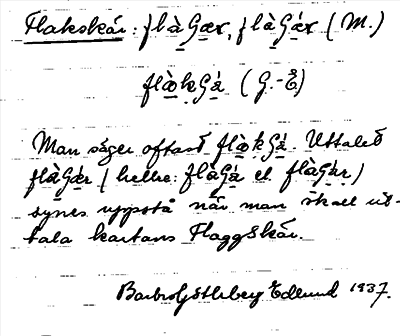 Flakskär: flàGær, flàGár (M.)
flàkGá (G.-E)
Man säger oftast flàkGá. Uttalet
flàGár (heller: flàGá el flàGár)
synes uppstå när man skall ut-
tala kartans Flaggskär.
Edlund 1937.